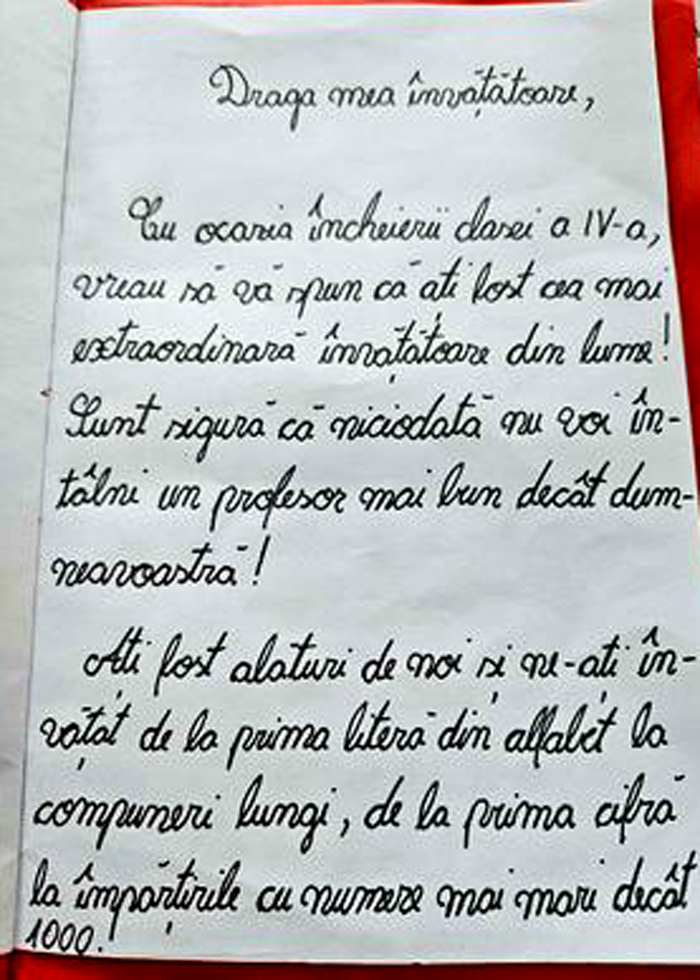 Draga mea învățătoare,
Cu ocazia încheierii clasei a IV-a,
vreau să vă spun că ați fost cea mai
extraordinară învățătoare din lume!
Sunt sigură că niciodată nu voi în-
tâlni un profesor mai bun decât dum-
neavoastră!
Ați fost alaturi de noi și ne-ați în-
vățat de la prima literă din alfabet la
compuneri lungi, de la prima cifră
la împărțirile cu numere mai mari decât
1000.